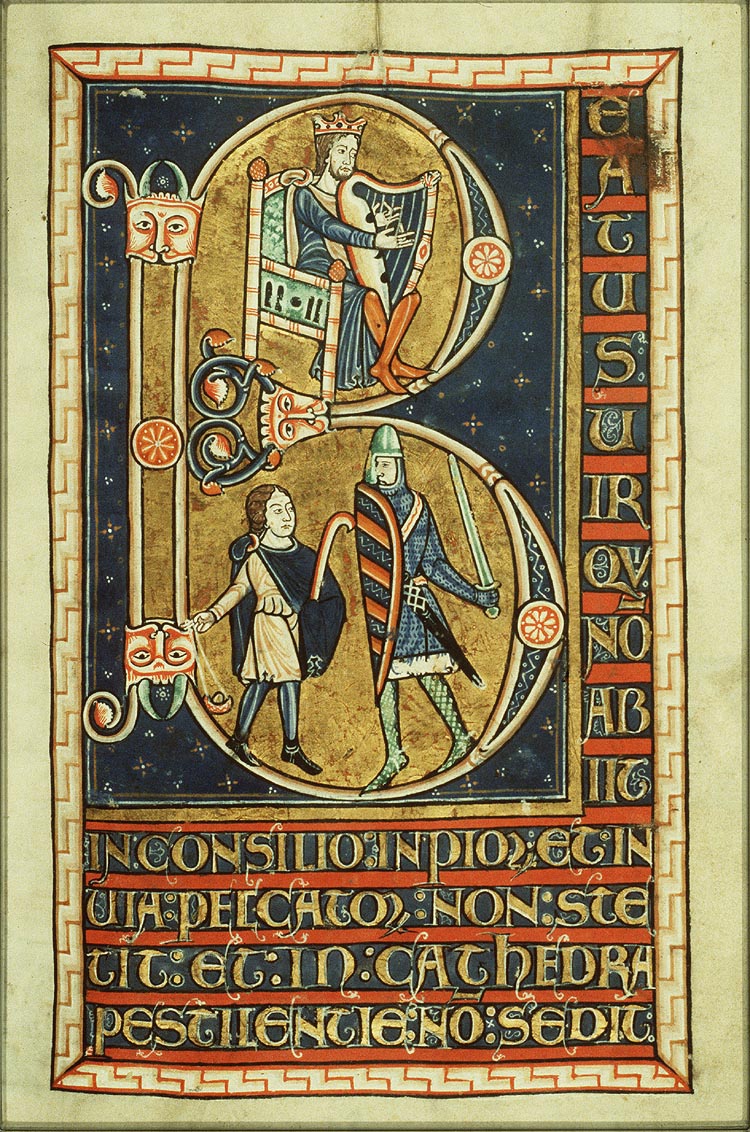 B
E
A
T
U
S
U
IR
QVI
NO
AB
IIT
IN CONSILIO: INPIOꝜ: ET: IN
UIA: PECCATOꝜ: NON: STE
TIT: ET: IN: CATHEDRA
PESTILENTIE: NO: SEDIT: